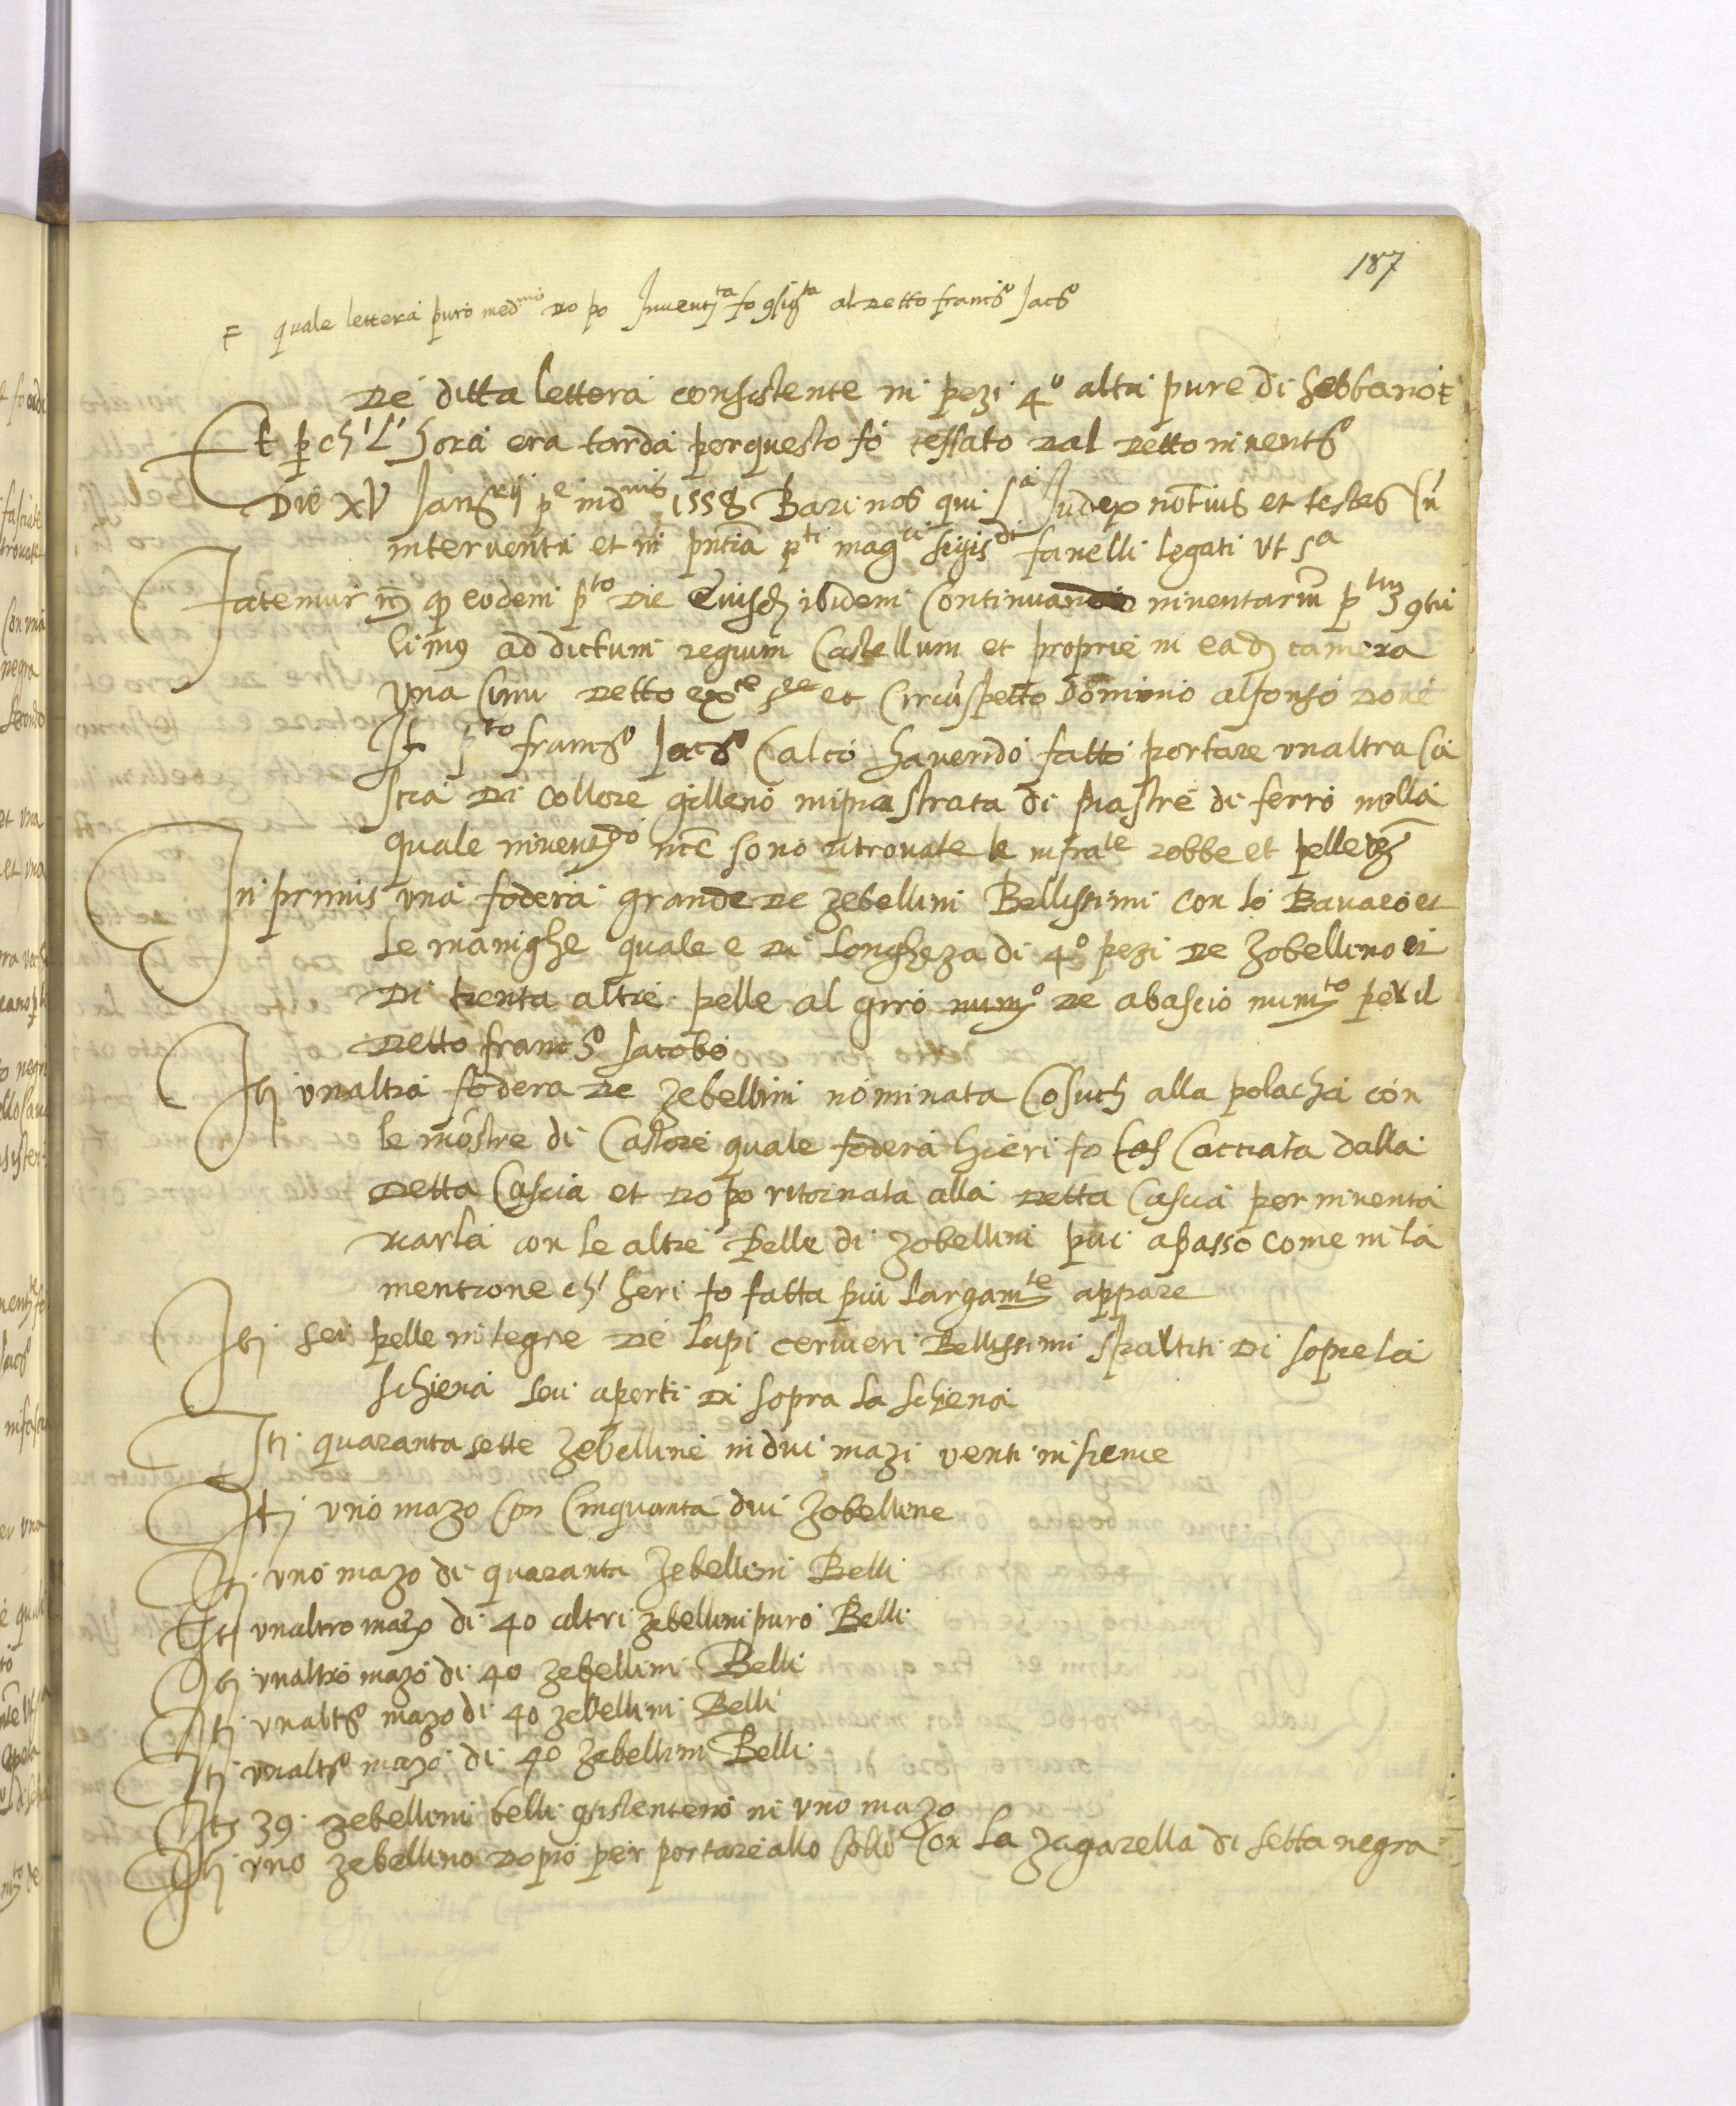 187
F quale lettera puro med^mo do po Invent^ta fo 9sig^ta al detto franc^o Jac^o
de ditta lettera consistente in pezi 4° altri pure di hebbano et
Et p ch' l' hora era tarda per questo fo cessato dal detto invent^o
Die XV Jan^rij p^e ind^nis 1558 Bari nos qui s^a Judex not^ius et testes
interventi et in pntia p^ti mag^ci sigis^di fanelli legati ut s^a
fatemur q eodem p^to die eiusd ibidem Continuando inventariu p^tum
ad dictum regium Castellum et proprie in ead camera
una cum detto ex^te et Circuspetto dominio alfonso
It p^to franc^o Jac^o Calco havendo fatto portare unaltra ca
scia di collore gilleno inpiastrata di piastre di ferro nella
quale sono ritrovate le infra^te robbe et pelle vz
In primis una fodera grande de zebellini Bellissimi con lo Bavaro et
le manighe quale e di longheza di 4° pezi de zobellino et
di trenta altre pelle al giro num^o de abascio num^to per il
detto franc^o Jacobo
Iti unaltra fodera de zebellini nominata Cosuch alla polacha con
le mostre di Castore quale fodera hieri fo Cacciata dalla
detta Cascia et do po ritornata alla detta Cascia per inventa
riarla con le altre Pelle di zobellini piu abasso come in la
mentione ch' heri fo fatta piu largam^te appare
Iti sei pelle integre de lupi cervieri Bellissimi spaltiti di sopre la
schiena seu aperti di sopra la schiena
Iti quaranta sette zebelline in dui mazi venti insieme
Iti uno mazo con Cinquanta dui zobelline
Iti uno mazo di quaranta zebellini Belli
Iti unaltro mazo di 40 altri zebellini puro Belli
Iti unaltro mazo di 40 zebellini Belli
Iti unalt^o mazo di 40 zebellini Belli
Iti unalt^o mazo di 40 zebellini Belli
Iti 39 zebellini belli 9sistenteno in uno mazo
Iti uno zebellino dopio per portare allo collo con la zagarella di setta negra